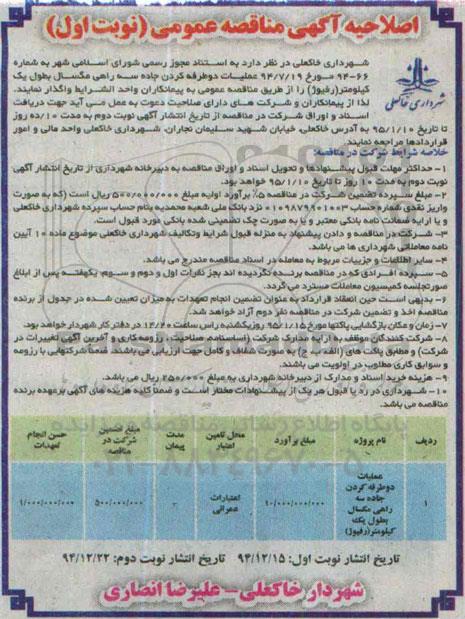 اصلاحیه آگهی مناقصه عمومی (نوبت اول)
شهرداری خاکعلی
شهرداری خاکعلی در نظر دارد به استناد مجوز رسمی شورای اسلامی شهر به شماره
۹۴-۶۶ مورخ ۹۴/۷/۱۹ عملیات دوطرفه کردن جاده سه راهی مگسال بطول یک
کیلومتر(رفیوژ) را از طریق مناقصه عمومی به پیمانکاران واحد الشرایط واگذار نمایند.
لذا از پیمانکاران و شرکت های دارای صلاحیت دعوت به عمل می آید جهت دریافت
اسناد و اوراق شرکت در مناقصه از تاریخ انتشار آگهی نوبت دوم به مدت ۱۰/ده روز
تا تاریخ ۹۵/۱/۱۰ به آدرس خاکعلی، خیابان شهید سلیمان نجاران، شهرداری خاکعلی واحد مالی و امور
قراردادها مراجعه نمایند.
خلاصه شرایط شرکت در مناقصه:
۱- حداکثر مهلت قبول پیشنهادها و تحویل اسناد و اوراق مناقصه به دبیرخانه شهرداری از تاریخ انتشار آگهی
نوبت دوم به مدت ۱۰ روز تا تاریخ ۹۵/۱/۱۰ خواهد بود.
۲- مبلغ سپرده تضمین شرکت در مناقصه ۵٪ برآورد اولیه مبلغ ۵۰۰/۰۰۰/۰۰۰ ریال است (که به صورت
واریز نقدی شماره حساب نزد بانک ملی شعبه محمدیه بنام حساب سپرده شهرداری خاکعلی
و یا ارایه ضمانت نامه بانکی معتبر و یا به صورت چک تضمینی شده بانکی مورد قبول است.
۳- شرکت در مناقصه و دادن پیشنهاد به منزله قبول شرایط وتکالیف شهرداری خاکعلی موضوع ماده ۱۰ آیین
نامه معاملاتی شهرداری ها می باشد.
۴- سایر اطلاعات و جزییات مربوط به معامله در اسناد مناقصه مندرج می باشد.
۵- سپرده افرادی که در مناقصه برنده نگردیده اند بجز نفرات اول و دوم و سوم، یکهفته پس از ابلاغ
صورتجلسه کمیسیون معاملات مسترد می گردد.
۶- بدیهی است حین انعقاد قرارداد به عنوان تضمین انجام تعهدات به میزان تعیین شده در جدول از برنده
مناقصه اخذ و تضمین شرکت در مناقصه نفر دوم آزاد خواهد شد.
۷- زمان و مکان بازگشایی پاکتها مورخ ۹۵/۱/۱۵ روز یکشنبه راس ساعت ۱۴/۳۰ در دفتر کار شهردار خواهد بود.
۸- شرکت کنندگان موظف به ارایه مدارک شرکت (اساسنامه، صلاحیت، رزومه کاری و آخرین آگهی تغییرات در
شرکت) و مطابق پاکت های (الف، ب، ج) به صورت شفاف و کامل جهت ارزیابی می باشند. ضمناً شرکتهایی با رزومه
و سوابق کاری مطلوب در اولویت می باشند.
۹- هزینه خرید اسناد و مدارک از دبیرخانه شهرداری به مبلغ ۲۵۰/۰۰۰ ریال می باشد.
۱۰- شهرداری در رد یا قبول هر یک از پیشنهادات مختار است و ضمنا کلیه هزینه های آگهی برعهده برنده
مناقصه می باشد.
ردیف نام پروژه مبلغ برآورد محل تامین اعتبار مدت پیمان مبلغ تضمین شرکت در مناقصه حسن انجام تعهدات
۱ عملیات دوطرفه کردن جاده سه راهی مگسال بطول یک کیلومتر(رفیوژ) ۱۰/۰۰۰/۰۰۰/۰۰۰ اعتبارات عمرانی - ۵۰۰/۰۰۰/۰۰۰ ۱/۰۰۰/۰۰۰/۰۰۰
تاریخ انتشار نوبت اول: ۹۴/۱۲/۱۵ تاریخ انتشار نوبت دوم: ۹۴/۱۲/۲۲
شهردار خاکعلی- علیرضا انصاری